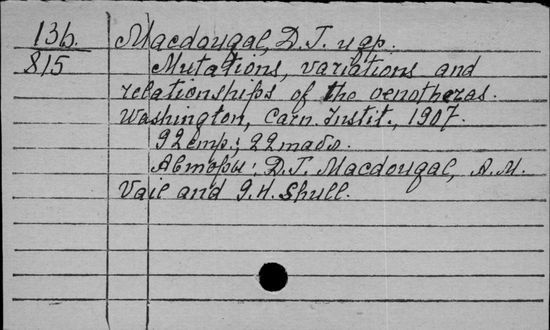 13б. Macdougal, D.T. и др.
815 Mutations, variations and
relationships of the oenotheras.
Washington, Carn. Instit., 1907.
92 стр.; 22 табл.
Авторы: D.T. Macdougal, A.M.
Vail and G.H. Shull.